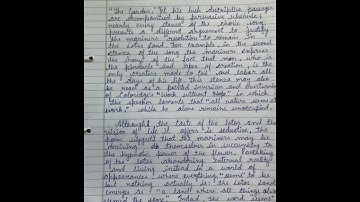 "The Garden." Yet his lush descriptive passages
are accompanied by persuasive rhetoric;
nearly every stanza of the choric song
presents a different argument to justify
the mariners' resolution to remain in
the lotos land. For example, in the second
stanza of the song the mariners express
the irony of the fact that man, who is
the pinnacle and apex of creation, is the
only creature made to toil and labor all
the days of his life. This stanza may also
be read as a pointed inversion and overturning
of Coleridge's "Work without Hope", in which
the speaker laments that "all nature seems at
work", while he alone remains unoccupied.
Although the taste of the lotos and the
vision of life it offers is seductive, the
poem suggests that the mariners may be
deceiving themselves in succumbing to
the hypnotic power of the flower. Partaking
of the lotos abandoning external reality
and living instead in a world of
appearances, where everything "seems" to be
but nothing actually is: the lotos land
emerges as "a land where all things always
seemed the same". Indeed, the word "seems"